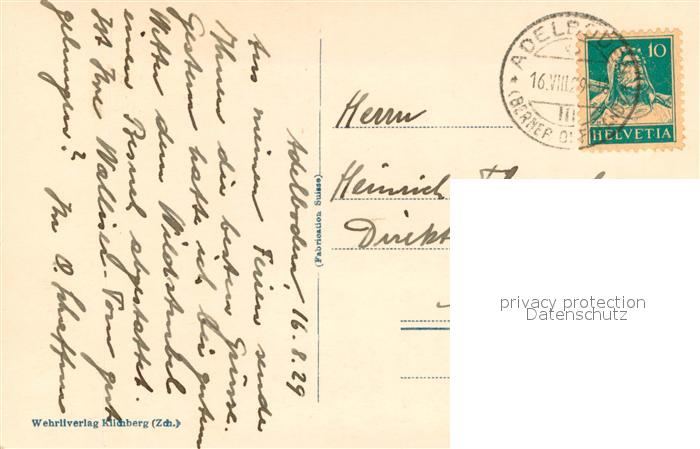 Adelboden, 16.8.29
Aus meinen Ferien sende
Ihnen die besten Grüsse.
Gestern hatte ich bei gutem
Wetter dem Wildstrubel
einen Besuch abgestattet.
Ist Ihre Walliser-Tour gut
gelungen? Ihr O. Schaffner
Wehrliverlag Kilchberg (Zch.)
(Fabrication Suisse)
Herrn
Heinrich
Direkt
ADELBODEN
16.VIII.29
(BERNER OBERLAND)
10
HELVETIA
privacy protection
Datenschutz